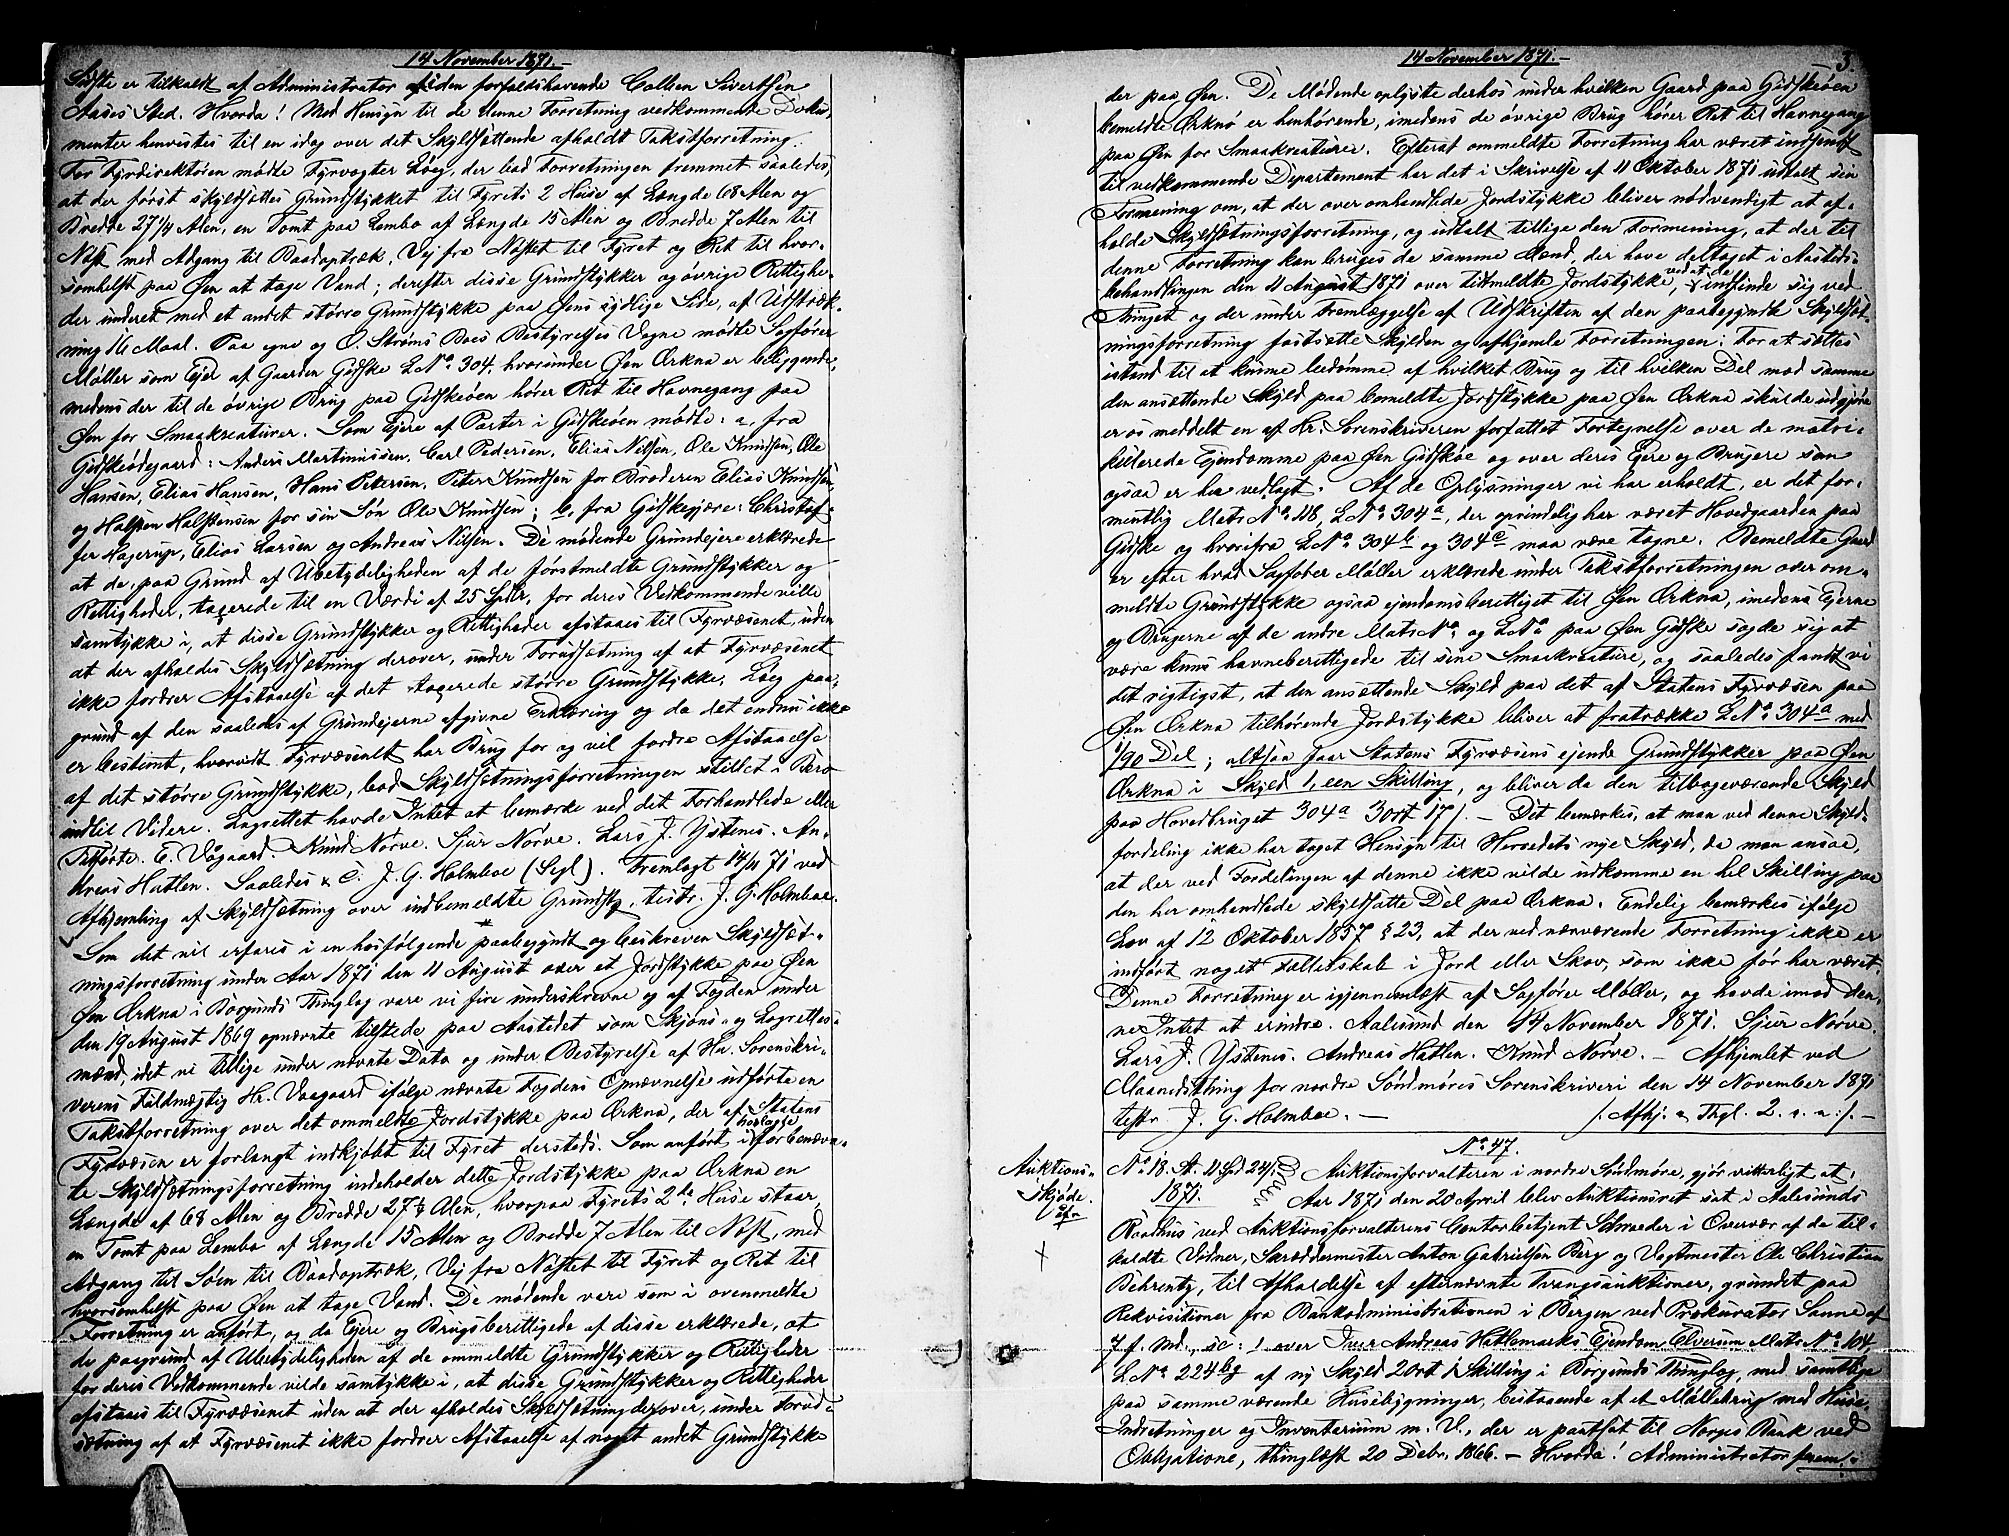 14 November 1871.-
Sidste er tilkaldt af Administrator for den forfaldshavende Colben Sivertsen
Aases Sted. Hvorda! Med Hensyn til de denne Forretning vedkommende Doku-
menter henvistes til en idag over det Skyldsættende afholdt Takstforretning.
For Fyrdirektøren mødte Fyrvogter Løeg, der bad Forretningen fremmet saaledes,
at der først skyldsættes Grundstykket til Fyrets 2 Huse af Længde 68 Alen og
Bredde 27¼ Alen, en Tomt paa Lembo af Længde 15 Alen og Bredde 7 Alen til
Nøst med Adgang til Baadoptræk, Vej fra Nøstet til Fyret og Ret til hvor-
somhelst paa Øen at tage Vand; derefter disse Grundstykker og øvrige Rettighe-
der inderet med et andet større Grundstykke paa Øens sydlige Side, af Udstræk-
ning 16 Maal. Paa egne og O. Strøms Boes Bestyrelses Vegne mødte Sagfører
Møller som Ejer af Gaarden Gidske L No 304, hvorunder Øen Ærkna er beliggende,
medens der til de øvrige Brug paa Gidskeøen hører Ret til Havnegang paa
Øen for Smaakreaturer. Som Ejere af Parter i Gidskeøen mødte: a, fra
Gidskeødegaard: Anders Martinussen, Carl Pedersen, Elias Nilsen, Ole Knudsen, Ole
Hansen, Elias Hansen, Hans Petersen, Peter Knudsen for Broderen Elias Knudsen,
og Halsten Halstensen for sin Søn Ole Knudsen; b, fra Gidskegjære: Christof-
fer Hagerup, Elias Larsen og Andreas Nilsen. De mødende Grundejere erklærede
at de paa Grund af Ubetydeligheden af de førstmeldte Grundstykker og
Rettigheder, taxerede til en Værdi af 25 Spdlr, for deres Vedkommende ville
samtykke i, at disse Grundstykker og Rettigheder afstaaes til Fyrvæsenet, uden
at der afholdes Skyldsætning derover, under Forudsætning af at Fyrvæsenet
ikke fordrer Afstaaelse af det taxerede større Grundstykke. Løeg paa-
grund af den saaledes af Grundejerne afgivne Erklæring og da det endnu ikke
er bestemt, hvorvidt Fyrvæsenet har Brug for og vil fordre Afstaaelse
af det større Grundstykke, bad Skyldsætningsforretningen stillet i Bero
indtil Videre. Lagrettet havde Intet at bemærke ved det Forhandlede eller
Tilførte. E. Vågaard. Knud Nørve. Sjur Nørve. Lars J. Ystenes. An-
dreas Hatlen. Saaledes & C. J. G. Holmboe (Segl). Fremlagt 14/11 71 ved
Afhjemling af Skyldsætning over indbemeldte Grundstk, testr. J. G. Holmboe.
Som det vil erfares i en hosfølgende paabegyndt og beskreven Skyldsæt-
ningsforretning under Aar 1871 den 11 August over et Jordstykke paa Øen
Øen Ærkna i Borgunds Thinglag vare vi fire underskrevne og af Fogden under
den 19 August 1869 opnævnte tilstede paa Aastedet som Skjøns- og Lagrettes-
mænd, idet vi tillige under nævnte Dato og under Bestyrelse af Hr. Sorenskri-
verens Fuldmægtig Hr. Vaagaard ifølge nævnte Fogdens Opnævnelse udførte en
Takstforretning over det ommeldte Jordstykke paa Ærkna, der af Statens
Fyrvæsen er forlangt indkjøbt til Fyret dersteds. Som anført i hoslagte forbenævn-
te Skyldsætningsforretning indeholder dette Jordstykke paa Ærkna en
Længde af 68 Alen og Bredde 27¼ Alen, hvorpaa Fyrets 2de Huse staar,
en Tomt paa Lembo af Længde 15 Alen og Bredde 7 Alen til Nøst, med
Adgang til Søen til Baadoptræk, Vej fra Nøstet til Fyret og Ret til
hvorsomhelst paa Øen at tage Vand. De mødende vare som i ovenmeldte
Forretning er anført, og da Ejere og Brugsberettigede af disse erklærede, at
de paagrund af Ubetydeligheden af de ommeldte Grundstykker og Rettigheder
for deres Vedkommende vilde samtykke i, at disse Grundstykker og Rettigheder
afstaaes til Fyrvæsenet uden at der afholdes Skyldsætning derover, under Forud-
sætning af at Fyrvæsenet ikke fordrer Afstaaelse af noget andet Grundstykke
14 November 1871.-
3.
der paa Øen. De Mødende oplyste derhos under hvilken Gaard paa Gidskeøen
bemeldte Ærknø er henhørende, imedens de øvrige Brug hører Ret til Havnegang
paa Øen for Smaakreaturer. Efterat ommeldte Forretning har været indsendt
til vedkommende Departement har det i Skrivelse af 11 Oktober 1871 udtalt sin
Formening om, at der over omhandlede Jordstykke bliver nødvendigt at af-
holde Skyldsætningsforretning, og udtalt tillige den Formening, at der til
denne Forretning kan bruges de samme Mænd, der have deltaget i Aasteds-
behandlingen den 11 August 1871 over tilmeldte Jordstykke, ved at de indfinde sig ved
Thinget og der under Fremlæggelse af Udskriften af den paabegyndte Skyldsæt-
ningsforretning fastsætte Skylden og afhjemle Forretningen. For at sættes
istand til at kunne bedømme af hvilket Brug og til hvilken Del mod samme
den ansættende Skyld paa bemeldte Jordstykke paa Øen Ærkna skulde udgjøre
er os meddelt en af Hr. Sorenskriveren forfattet Fortegnelse over de matri-
kulerede Ejendomme paa Øen Gidskøe og over deres Ejere og Brugere som
ogsaa er her vedlagt. Af de Oplysninger vi har erholdt, er det for-
mentlig Matr No 118, L No 304a, der oprindelig har været Hovedgaarden paa
Gidske og hvorifra L No 304b og 304c maa være tagne. Bemeldte Gaard
er efter hvad Sagfører Møller erklærede under Takstforretningen over om-
meldte Grundstykke ogsaa ejendomsberettiget til Øen Ærkna, imedens Ejerne
og Brugerne af de andre Matr No og L No paa Øen Gidske sagde sig at
være kuns havneberettigede til sine Smaakreature, og saaledes fandt vi
det rigtigst, at den ansættende Skyld paa det af Statens Fyrvæsen paa
Øen Ærkna tilhørende Jordstykke bliver at fratrække L No 304a med
1/90 Del; altsaa faar Statens Fyrvæsens ejende Grundstykker paa Øen
Ærkna i Skyld 1, een Skilling, og bliver da den tilbageværende Skyld
paa Hovedbruget 304a 3 ort 17 /. - Det bemærkes, at man ved denne Skyld-
fordeling ikke har taget Hensyn til Herredets nye Skyld, da man ansaae,
at der ved Fordelingen af denne ikke vilde udkomme en hel Skilling paa
den her omhandlede skyldsatte Del paa Ærkna. Endelig bemærkes ifølge
Lov af 12 Oktober 1857 § 23, at der ved nærværende Forretning ikke er
indført noget Fælledskab i Jord eller Skov, som ikke før har været.
Denne Forretning er igjennemlæst af Sagfører Møller, og havde imod den-
ne Intet at erindre. Aalesund den 14 November 1871. Sjur Nørve.
Lars J. Ystenes. Andreas Hatlen. Knud Nørve. - Afhjemlet ved
Maanedsthing for nordre Søndmøres Sorenskriveri den 14 November 1871
testr. J. G. Holmboe. - /: Afhj. & Thgl. 2. a. a :/ -
No 47.
Auktions-
skjøde.
No 18. A. 11 Spd 22/.
1871.
Auktionsforvalteren i nordre Søndmøre, gjør vitterligt at
Aar 1871 den 20 April blev Auktionsret sat i Aalesunds
Raadhus ved Auktionsforvalterens Contorbetjent Schrøeder i Overvær af de til-
kaldte Vidner, Skræddermester Anton Gabrielsen Berg og Vegtmester Ole Christian
Behrentz, til Afholdelse af efternævnte Tvangsauktioner, grundet paa
Rekvisitioner fra Bankadministrationen i Bergen ved Prokurator Sanne af
7 f. Md., sc: 1 over Iver Andreas Hatlemarks Ejendom Elverum Matr No 104,
L No 224bg af ny Skyld 2 ort 1 Skilling i Borgunds Thinglag, med samtlige
paa samme værende Husebygninger, bestaaende af et Møllebrug med Huse,
Indretninger og Inventarium m. V., der er pantsat til Norges Bank ved
Obligatione, thinglæst 20 Debr. 1866. - Hvorda! Administrator frem-